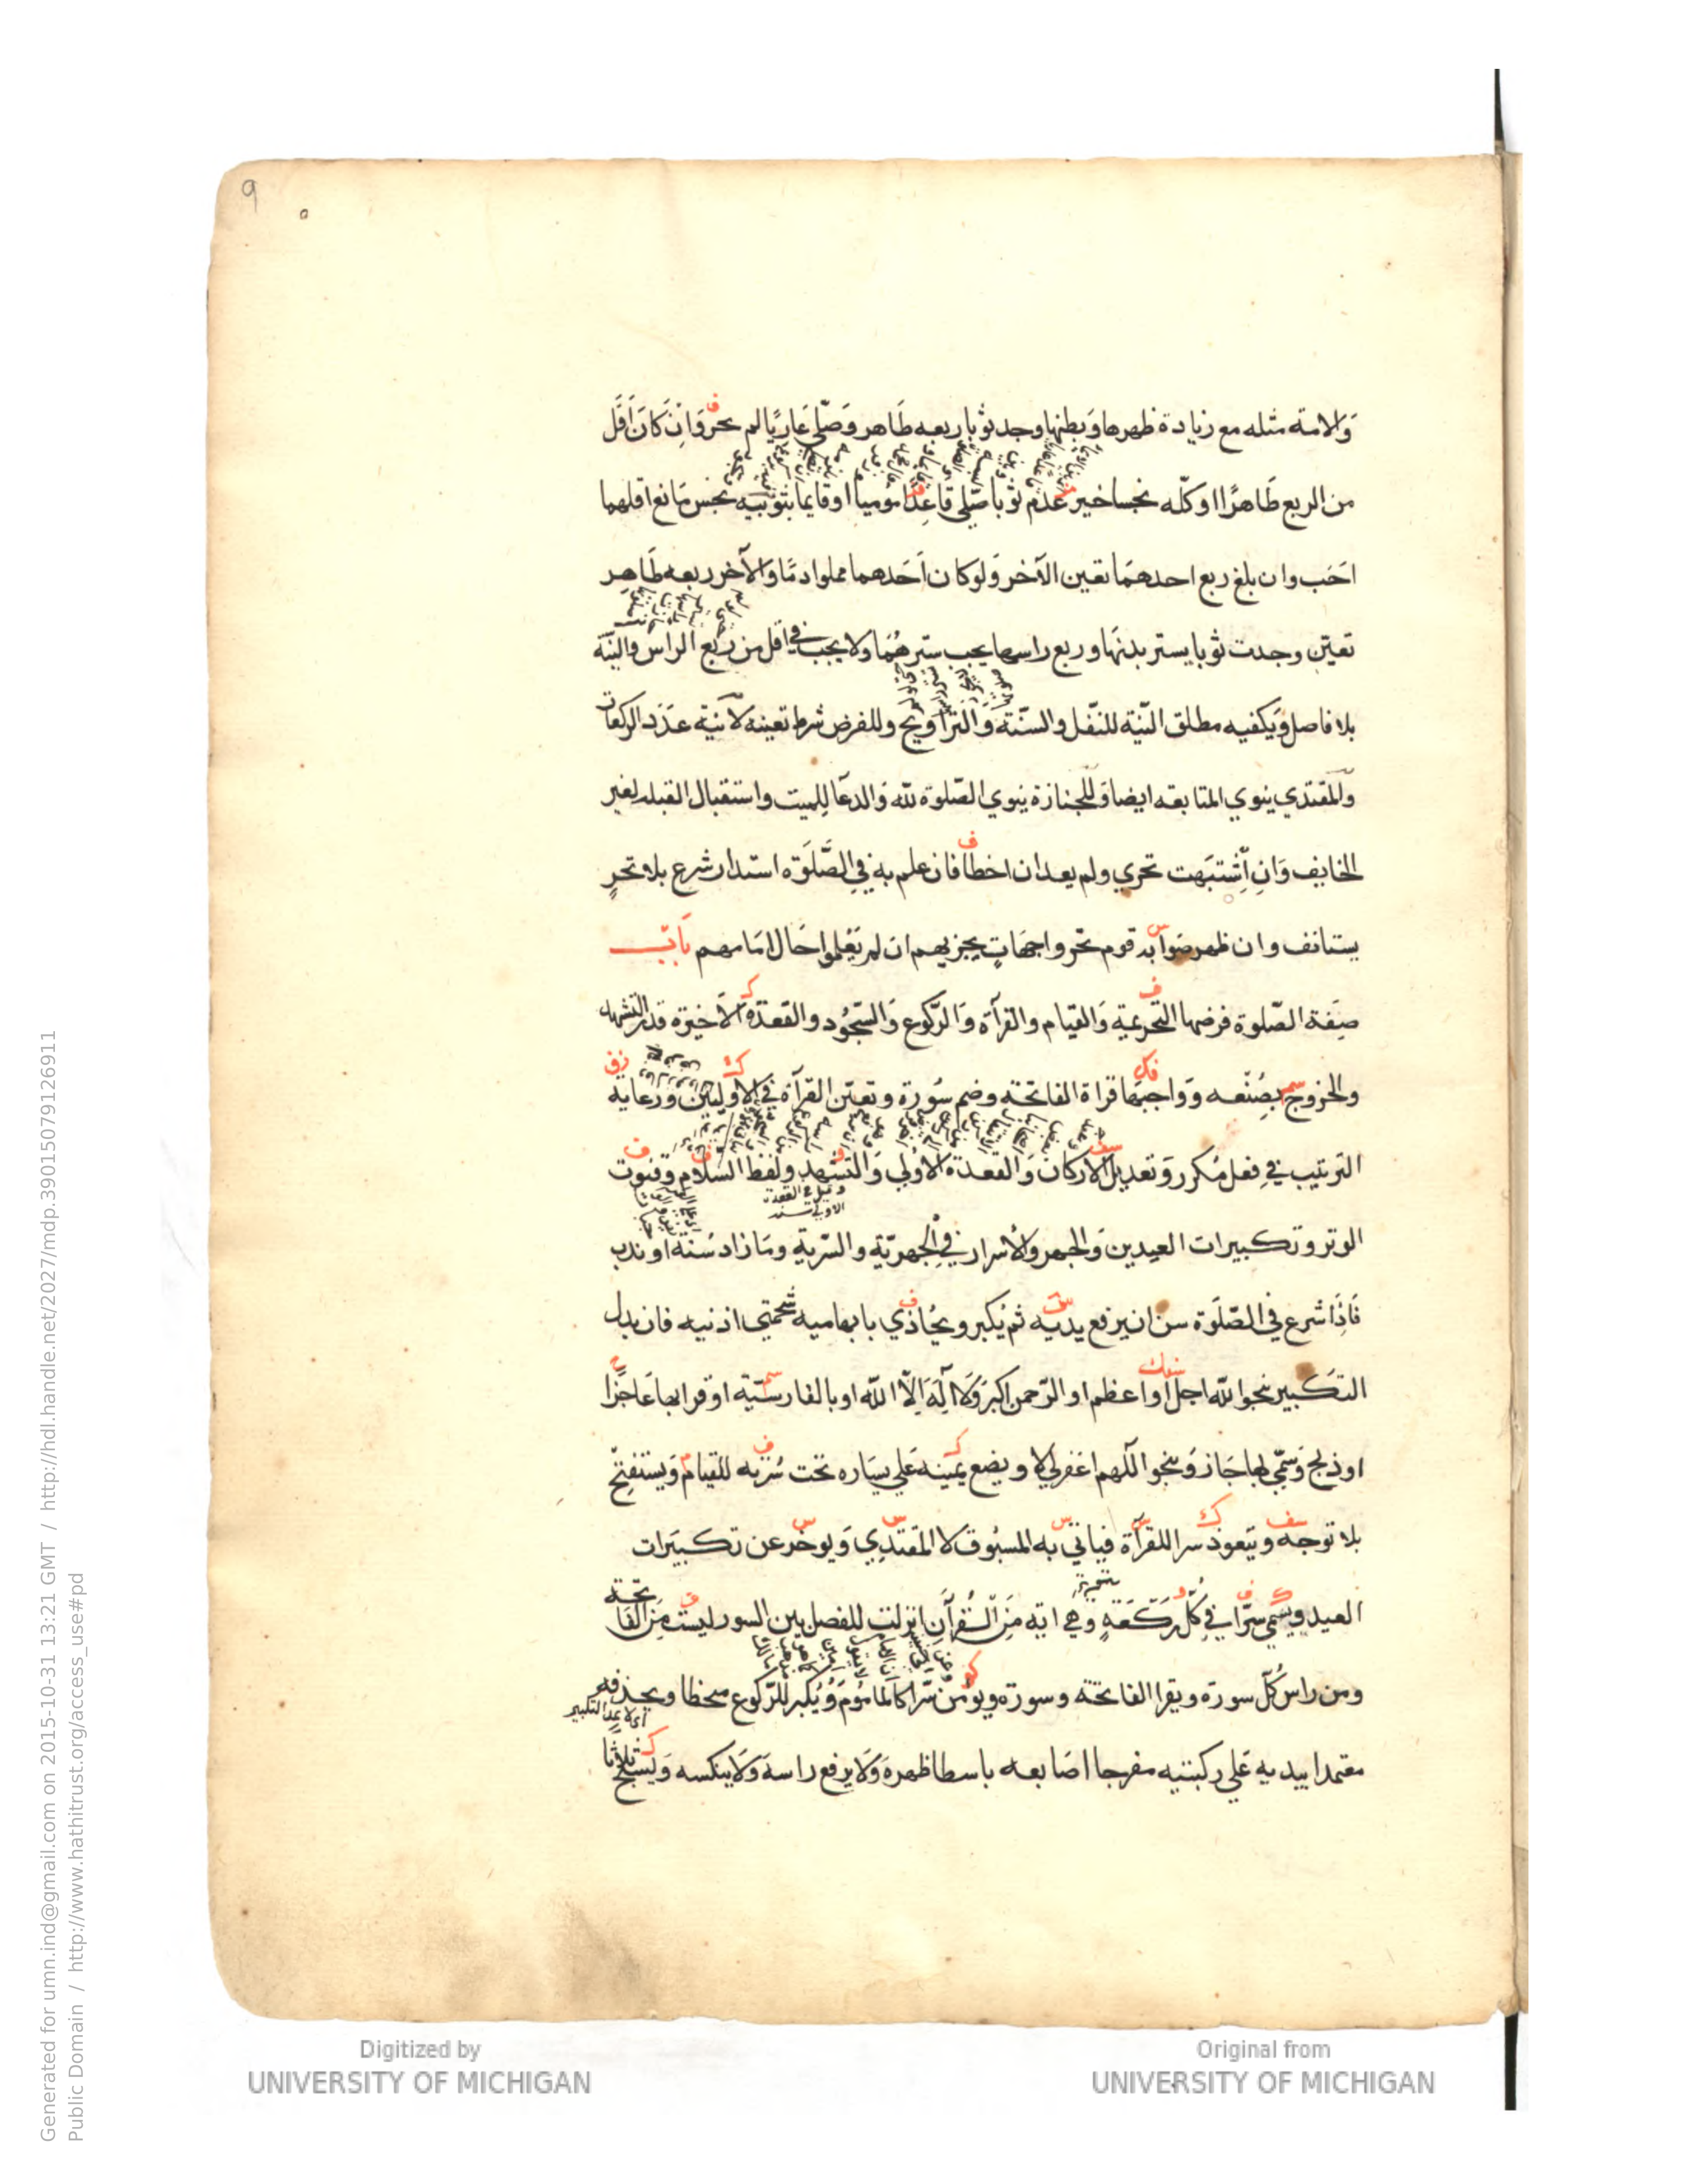 9
والامة مثله مع زيادة ظهرها وبطنها وجد ثوبا ربعه طاهر وصلى عاريا لم يجز وان كان اقل
من الربع طاهرا او كله نجسا خير عدم ثوبا صلى قاعدا موميا او قايما بثوبيه نجس مانع اقلهما
احب وان بلغ ربع احدهما تعين الآخر ولو كان احدهما مملوا دما والآخر ربعه طاهر
تعين وجدت ثوبا يستر بدنها وربع راسها يجب سترهما ولا يجب في اقل من ربع الراس والنية
بلا فاصل ويكفيه مطلق النية للنفل والسنة والتراويح وللفرض شرط تعينه لا نية عدد الركعات
والمقتدي ينوي المتابعه ايضا وللجنازة ينوي الصلوة لله والدعا للميت واستقبال القبله لغير
الخايف وان اشتبهت تحري ولم يعد ان اخطا فان علم به في الصلوة استدار شرع بلا تحر
يستانف وان ظهر صوابه قوم تحروا جهات يجزيهم ان لم يعلموا حال امامهم باب
صفة الصلوة فرضها التحريمة والقيام والقرآة والركوع والسجود والقعدة الاخيرة قدر التشهد
والخروج بصنعه وواجبها قراة الفاتحة وضم سورة وتعين القرآة في الاوليين ورعاية
الترتيب في فعل مكرر وتعديل الاركان والقعدة الاولي والتشهد ولفظ السلام وقنوت
وقيل في القعدة
الاولي سنة
الوتر وتكبيرات العيدين والجهر والاسرار في الجهرية والسرية وما زاد سنة او ندب
فاذا شرع في الصلوة سن ان يرفع يديه ثم يكبر ويحاذي بابهاميه شحمتي اذنيه فان بدل
التكبير بنحو الله اجل او اعظم او الرحمن اكبر ولا اله الا الله او بالفارسية او قرا بها عاجزا
او ذبح وسمي بها جاز وبنحو اللهم اغفر لي لا ويضع يمينه علي يساره تحت سرته للقيام ويستفتح
بلا توجه ويتعوذ سرا للقرآة فياتي به المسبوق لا المقتدي ويوخر عن تكبيرات
العيد ويسمي سرا في كل ركعة وهي اية من القرآن انزلت للفصل بين السور ليست من الفاتحة
ومن راس كل سورة ويقرا الفاتحة وسورة ويومن سرا كالماموم ويكبر للركوع منحطا ويحذفه
اي لا يمد التكبير
معتمدا بيديه علي ركبتيه مفرجا اصابعه باسطا ظهره ولا يرفع راسه ولا ينكسه ويسبح ثلاثا
Digitized by
UNIVERSITY OF MICHIGAN
Original from
UNIVERSITY OF MICHIGAN
Generated for umn.ind@gmail.com on 2015-10-31 13:21 GMT / http://hdl.handle.net/2027/mdp.39015079126911
Public Domain / http://www.hathitrust.org/access_use#pd